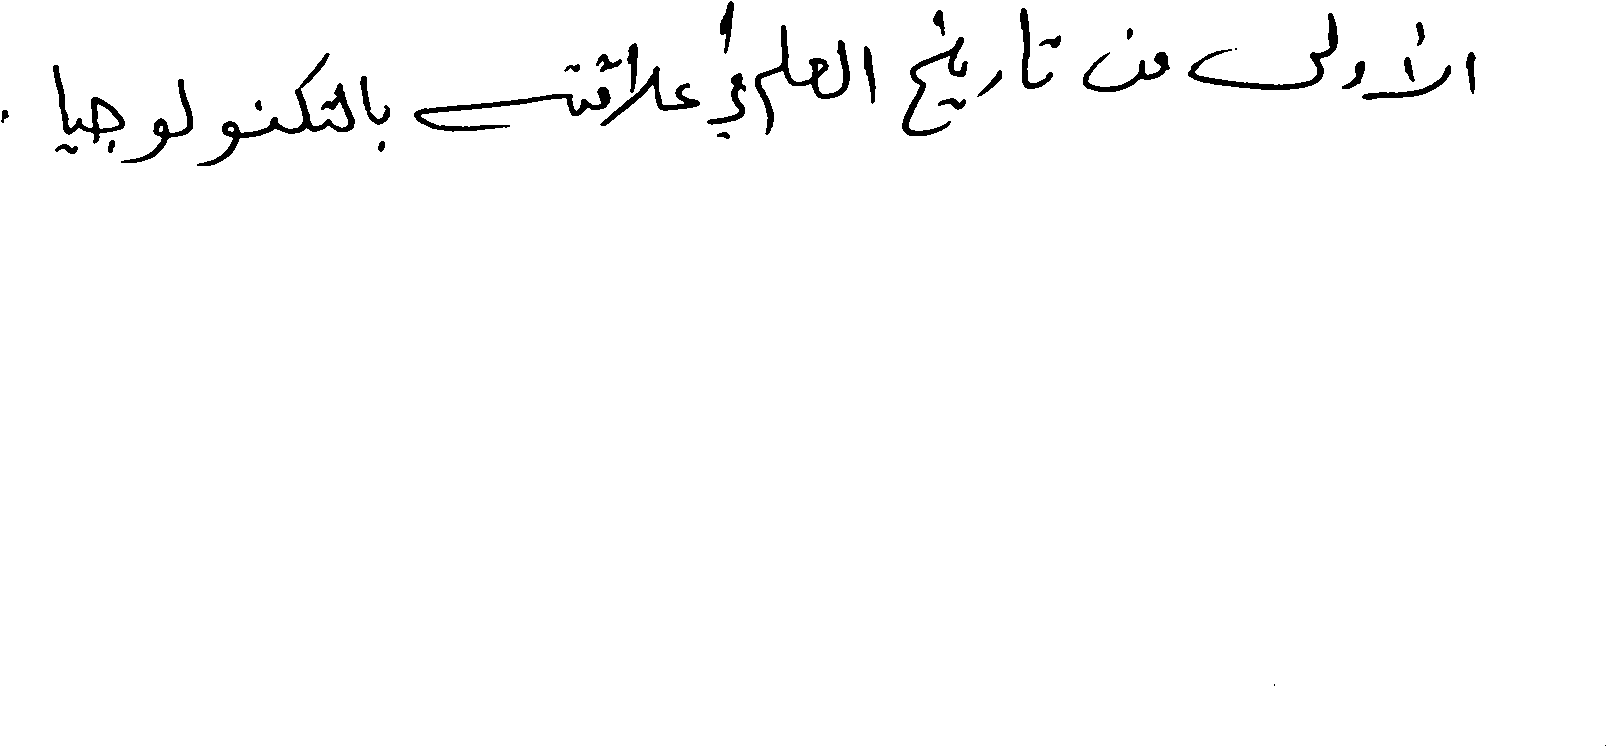 الأولى من تاريخ العلم في علاقته بالتكنولوجيا .